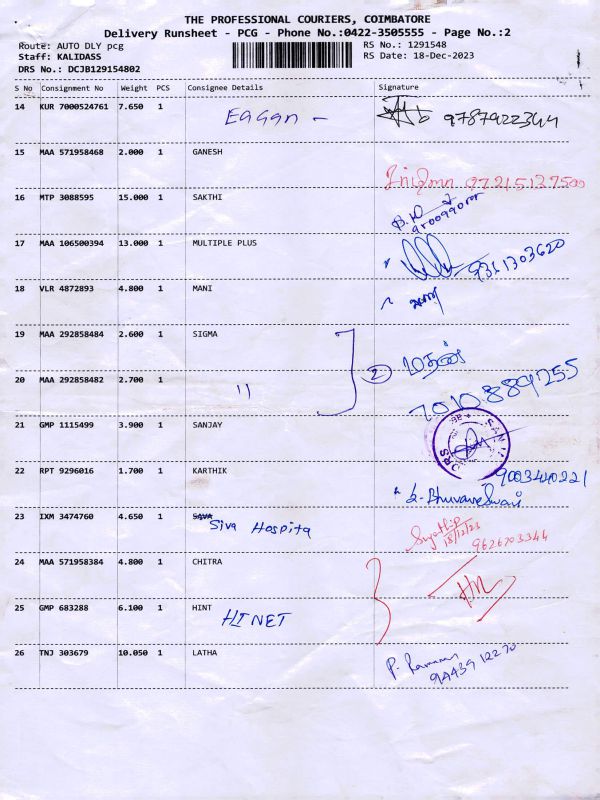 THE PROFESSIONAL COURIERS, COIMBATORE
Delivery Runsheet - PCG - Phone No.:0422-3505555 - Page No.:2
Route: AUTO DLY pcg RS No.: 1291548
Staff: KALIDASS RS Date: 18-Dec-2023
DRS No.: DCJB129154802
S No Consignment No Weight PCS Consignee Details Signature
14 KUR 7000524761 7.650 1 Eagan - 9787922344
15 MAA 571958468 2.000 1 GANESH
16 MTP 3088595 15.000 1 SAKTHI
17 MAA 106500394 13.000 1 MULTIPLE PLUS 9361303620
18 VLR 4872893 4.800 1 MANI
19 MAA 292858484 2.600 1 SIGMA
20 MAA 292858482 2.700 1 " 2 மதன்
7010889255
21 GMP 1115499 3.900 1 SANJAY
22 RPT 9296016 1.700 1 KARTHIK 9003440221
K. Bhuvaneswari
23 IXM 3474760 4.650 1 SAVA Siva Hospita
18/12/23
9626703344
24 MAA 571958384 4.800 1 CHITRA
25 GMP 683288 6.100 1 HINT
HINET
26 TNJ 303679 10.050 1 LATHA P. Raman
9443912270